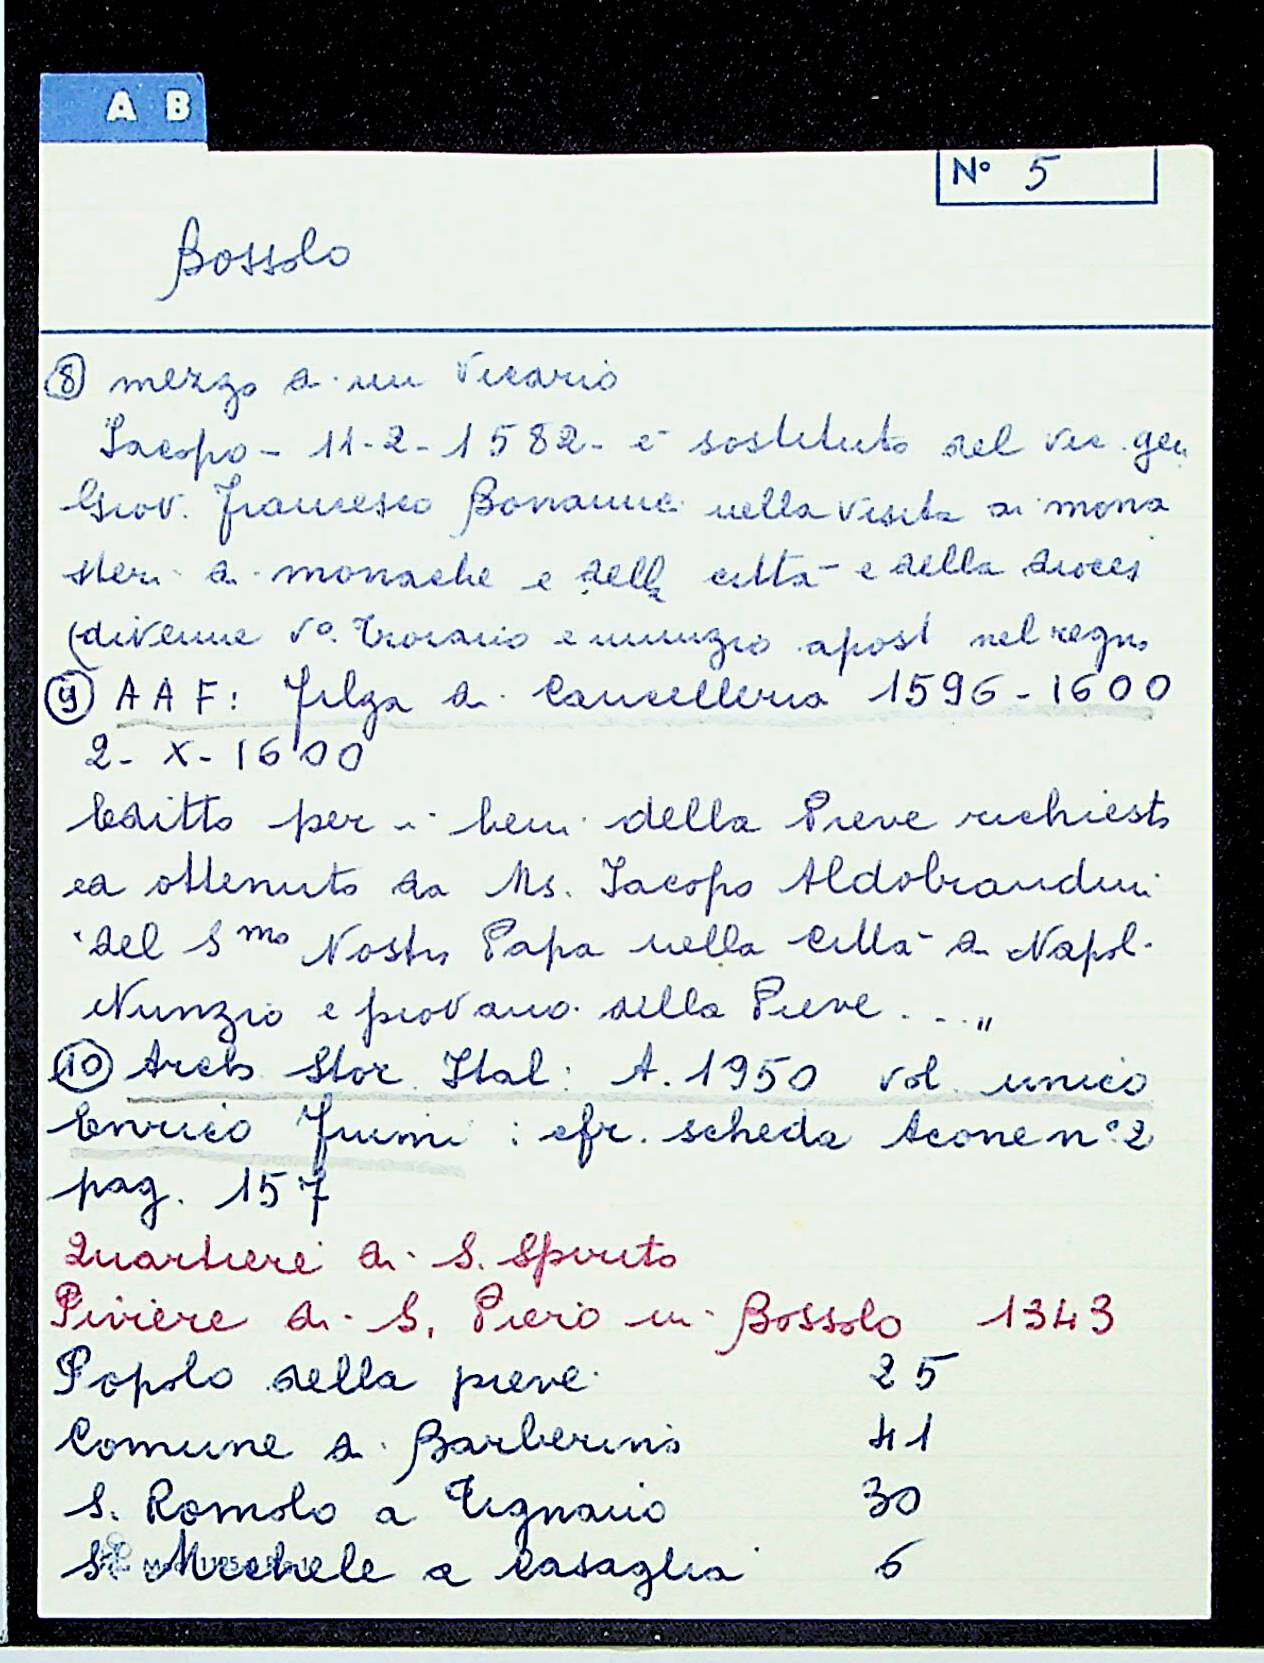 A B
N° 5
Bossolo
⑧ mezzo di un Vicario
Iacopo - 11-2-1582 - è sostituto del vic. gen
Giov. Francesco Bonanni nella visita ai mona
steri di monache e della città e della dioces
(divenne v° Troiano e nunzio apost nel regno
⑨ A A F: Filza di Cancelleria 1596-1600
2-X-1600
Editto per i beni della Pieve richiesto
ed ottenuto da Ms. Iacopo Aldobrandini
"del Smo Nostro Papa nella Città di Napoli
Nunzio e piovano della Pieve ... "
⑩ Arch Stor. Ital: A. 1950 vol. unico
Enrico Fiumi: cfr. scheda Acone n° 2
pag. 157
Quartiere di S. Spirito
Piviere di S. Piero in Bossolo 1343
Popolo della pieve 25
Comune di Barberino 41
S. Romolo a Tignano 30
S. Michele a Casaglia 6